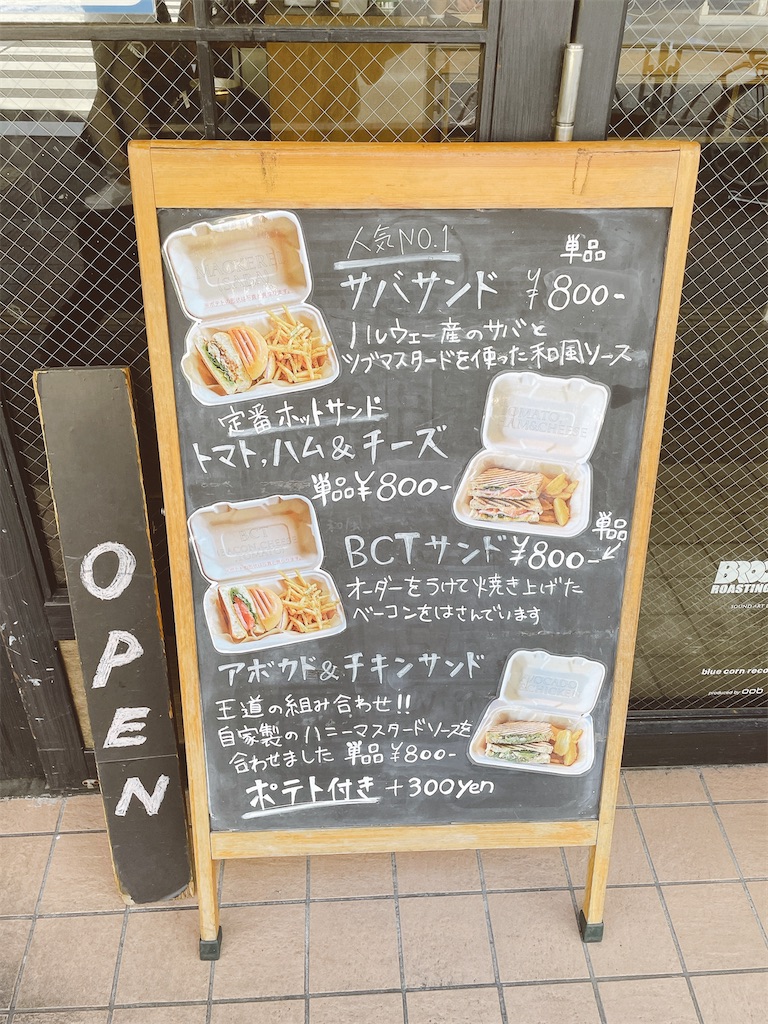 人気NO.1
単品
サバサンド ¥800-
ノルウェー産のサバと
ツブマスタードを使った和風ソース
定番ホットサンド
トマト,ハム&チーズ
単品¥800-
単品
BCTサンド ¥800-
オーダーをうけて焼き上げた
ベーコンをはさんでいます
アボカド&チキンサンド
王道の組み合わせ!!
自家製のハニーマスタードソースを
合わせました 単品 ¥800-
ポテト付き +300yen
OPEN
BCT
ROASTING
blue corn reco
produced by